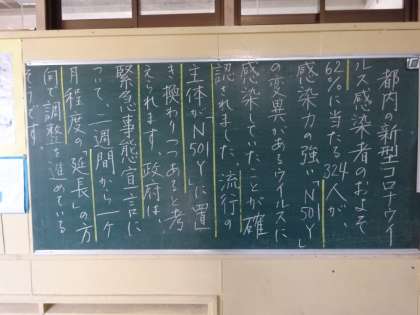 都内の新型コロナウイ
ルス感染者のおよそ
62%に当たる324人が、
感染力の強い「N501Y」
の変異があるウイルスに
感染していたことが確
認されました。流行の
主体が「N501Y」に置
き換わりつつあると考
えられます。政府は、
緊急事態宣言に
ついて、二週間から一ヶ
月程度の延長の方
向で調整を進めている
そうです。